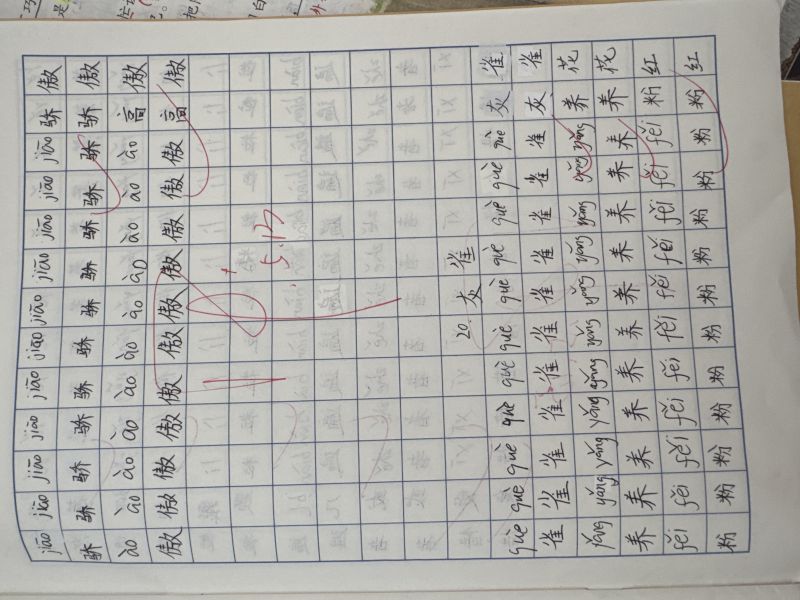 jiāo jiāo jiāo jiāo jiāo jiāo jiāo jiāo jiāo jiāo jiāo 骄 傲
骄 骄 骄 骄 骄 骄 骄 骄 骄 骄 骄 骄 傲
ào ào ào ào ào ào ào ào ào ào ào 高 傲
傲 傲 傲 傲 傲 傲 傲 傲 傲 傲 傲 高 傲
5.13
20. 灰 雀
què què què què què què què què què què què 灰 雀
雀 雀 雀 雀 雀 雀 雀 雀 雀 雀 雀 灰 雀
yǎng yǎng yǎng yǎng yǎng yǎng yǎng yǎng yǎng yǎng yǎng 养 花
养 养 养 养 养 养 养 养 养 养 养 养 花
fěi fěi fěi fěi fěi fěi fěi fěi fěi fěi fěi 粉 红
粉 粉 粉 粉 粉 粉 粉 粉 粉 粉 粉 粉 红